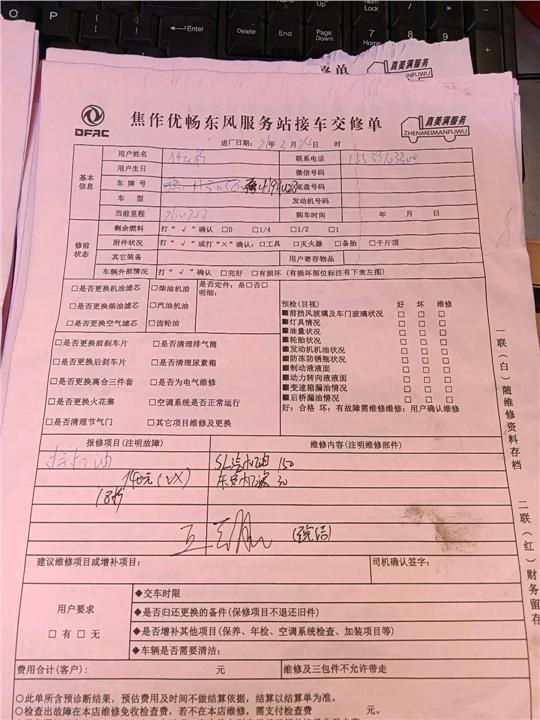 真美满服务
DFAC
焦作优畅东风服务站接车交修单
真美满服务
ZHENMEIMANFUWU
进厂日期：21年3月24日 时
基本信息
用户姓名
联系电话
用户生日
微信号码
车牌号
底盘号码
车型
发动机号码
当前里程
购车时间 年 月 日
修前状态
剩余燃料 打“√”确认 □0 □1/4 □1/2 □1
附件状况 打“√”或打“×”确认：□工具 □灭火器 □备胎 □千斤顶
其它装备 用户寄存物品
车辆外部情况 打“√”确认 □完好 □有损坏（有损坏部位标注有下表左图）
□是否更换机油滤芯 □柴油机油 是否定件：是□否□
明细：
□是否更换柴油滤芯 □汽油机油
□是否更换空气滤芯 □齿轮油
□是否更换前刹车片 □是否清理排气筒
□是否更换后刹车片 □是否清理尿素箱
□是否更换离合三件套 □是否为电气维修
□是否更换火花塞 □空调系统是否正常运行
□是否清理节气门 □其它项目维修及更换
预检(目视) 好 坏 维修
■前挡风玻璃及车门玻璃状况 □ □ □
■灯具情况 □ □ □
■油量状况 □ □ □
■轮胎状况 □ □ □
■发动机机油状况 □ □ □
■防冻防锈瓶状况 □ □ □
■制动液液面 □ □ □
■动力转向液液面 □ □ □
■变速箱漏油情况 □ □ □
■后桥漏油情况 □ □ □
好：合格 坏：有故障需维修维修：用户确认维修
报修项目(注明故障)
维修内容(注明维修部件)
150
140元(VX)
30
建议维修项目或增补项目：
司机确认签字：
用户要求
□有□无
◆交车时限
◆是否归还更换的备件(保修项目不退还旧件)
◆是否增补其他项目(保养、年检、空调系统检查、加装项目等)
◆车辆是否需要清洁：
费用合计(客户)： 元
维修及三包件不允许带走
○此单所含预诊断结果，预估费用及时间不做结算依据，结算以结算单为准。
○检查出故障在本店维修免收检查费，若不在本店维修，需支付检查费 元。
一联(白)随维修资料存档
二联(红)财务留存